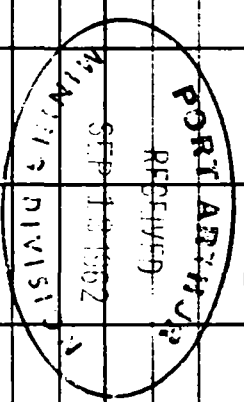 PORT ARTHUR
RECEIVED
SEP 1962
MINING DIVISION